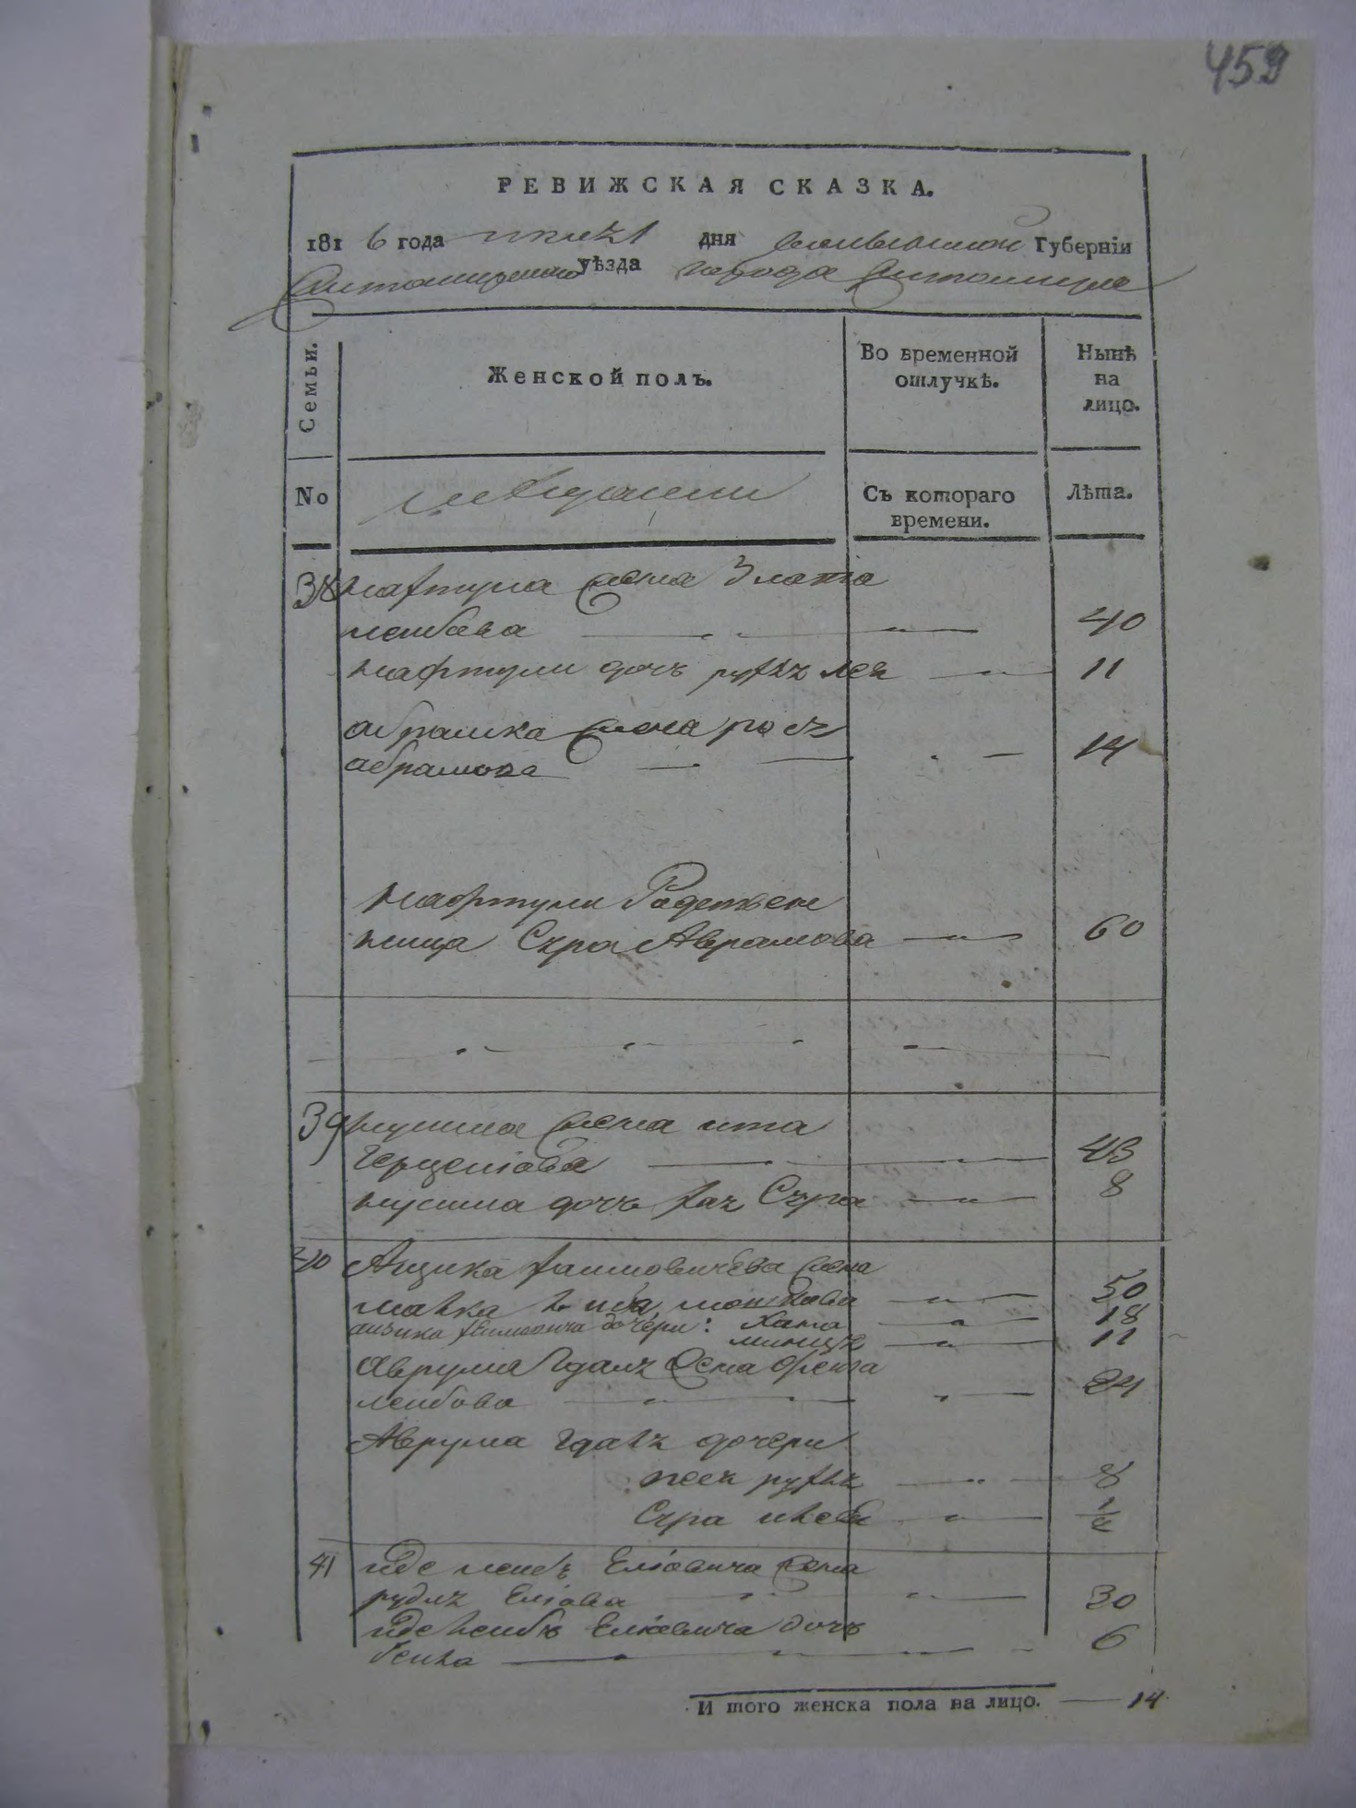 459
РЕВИЖСКАЯ СКАЗКА.
1816 года дня волынской Губерніи
Житомирскаго уѣзда города Житомира
Семьи.
Женской полъ.
Во временной отлучкѣ.
Нынѣ на лицо.
No
Съ котораго времени.
Лѣта.
38 нафтулы жена Злата
лейбова 40
нафтули дочь рухля лея 11
абрамка жена рося
абрамова 14
Нафтули Родствен
ница Сура Аврамова 60
39 мушка жена ита
Герцеліова 43
дочь хая Сура 8
40 Айзика хаимовичева жена
50
айзика хаимовича дочери: Хана 18
11
Аврума Гдаля жена Фрейга
лейбова 24
Аврума Гдаля дочери
песя рухля 8
Сура 1/2
41 Еліовича жена
рудля Еліова 30
Еліовича дочь
бейла 6
И того женска пола на лицо. — 14